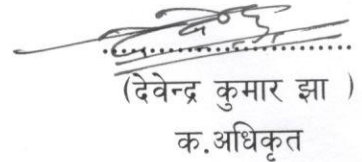 (देवेन्द्र कुमार झा )
क.अधिकृत